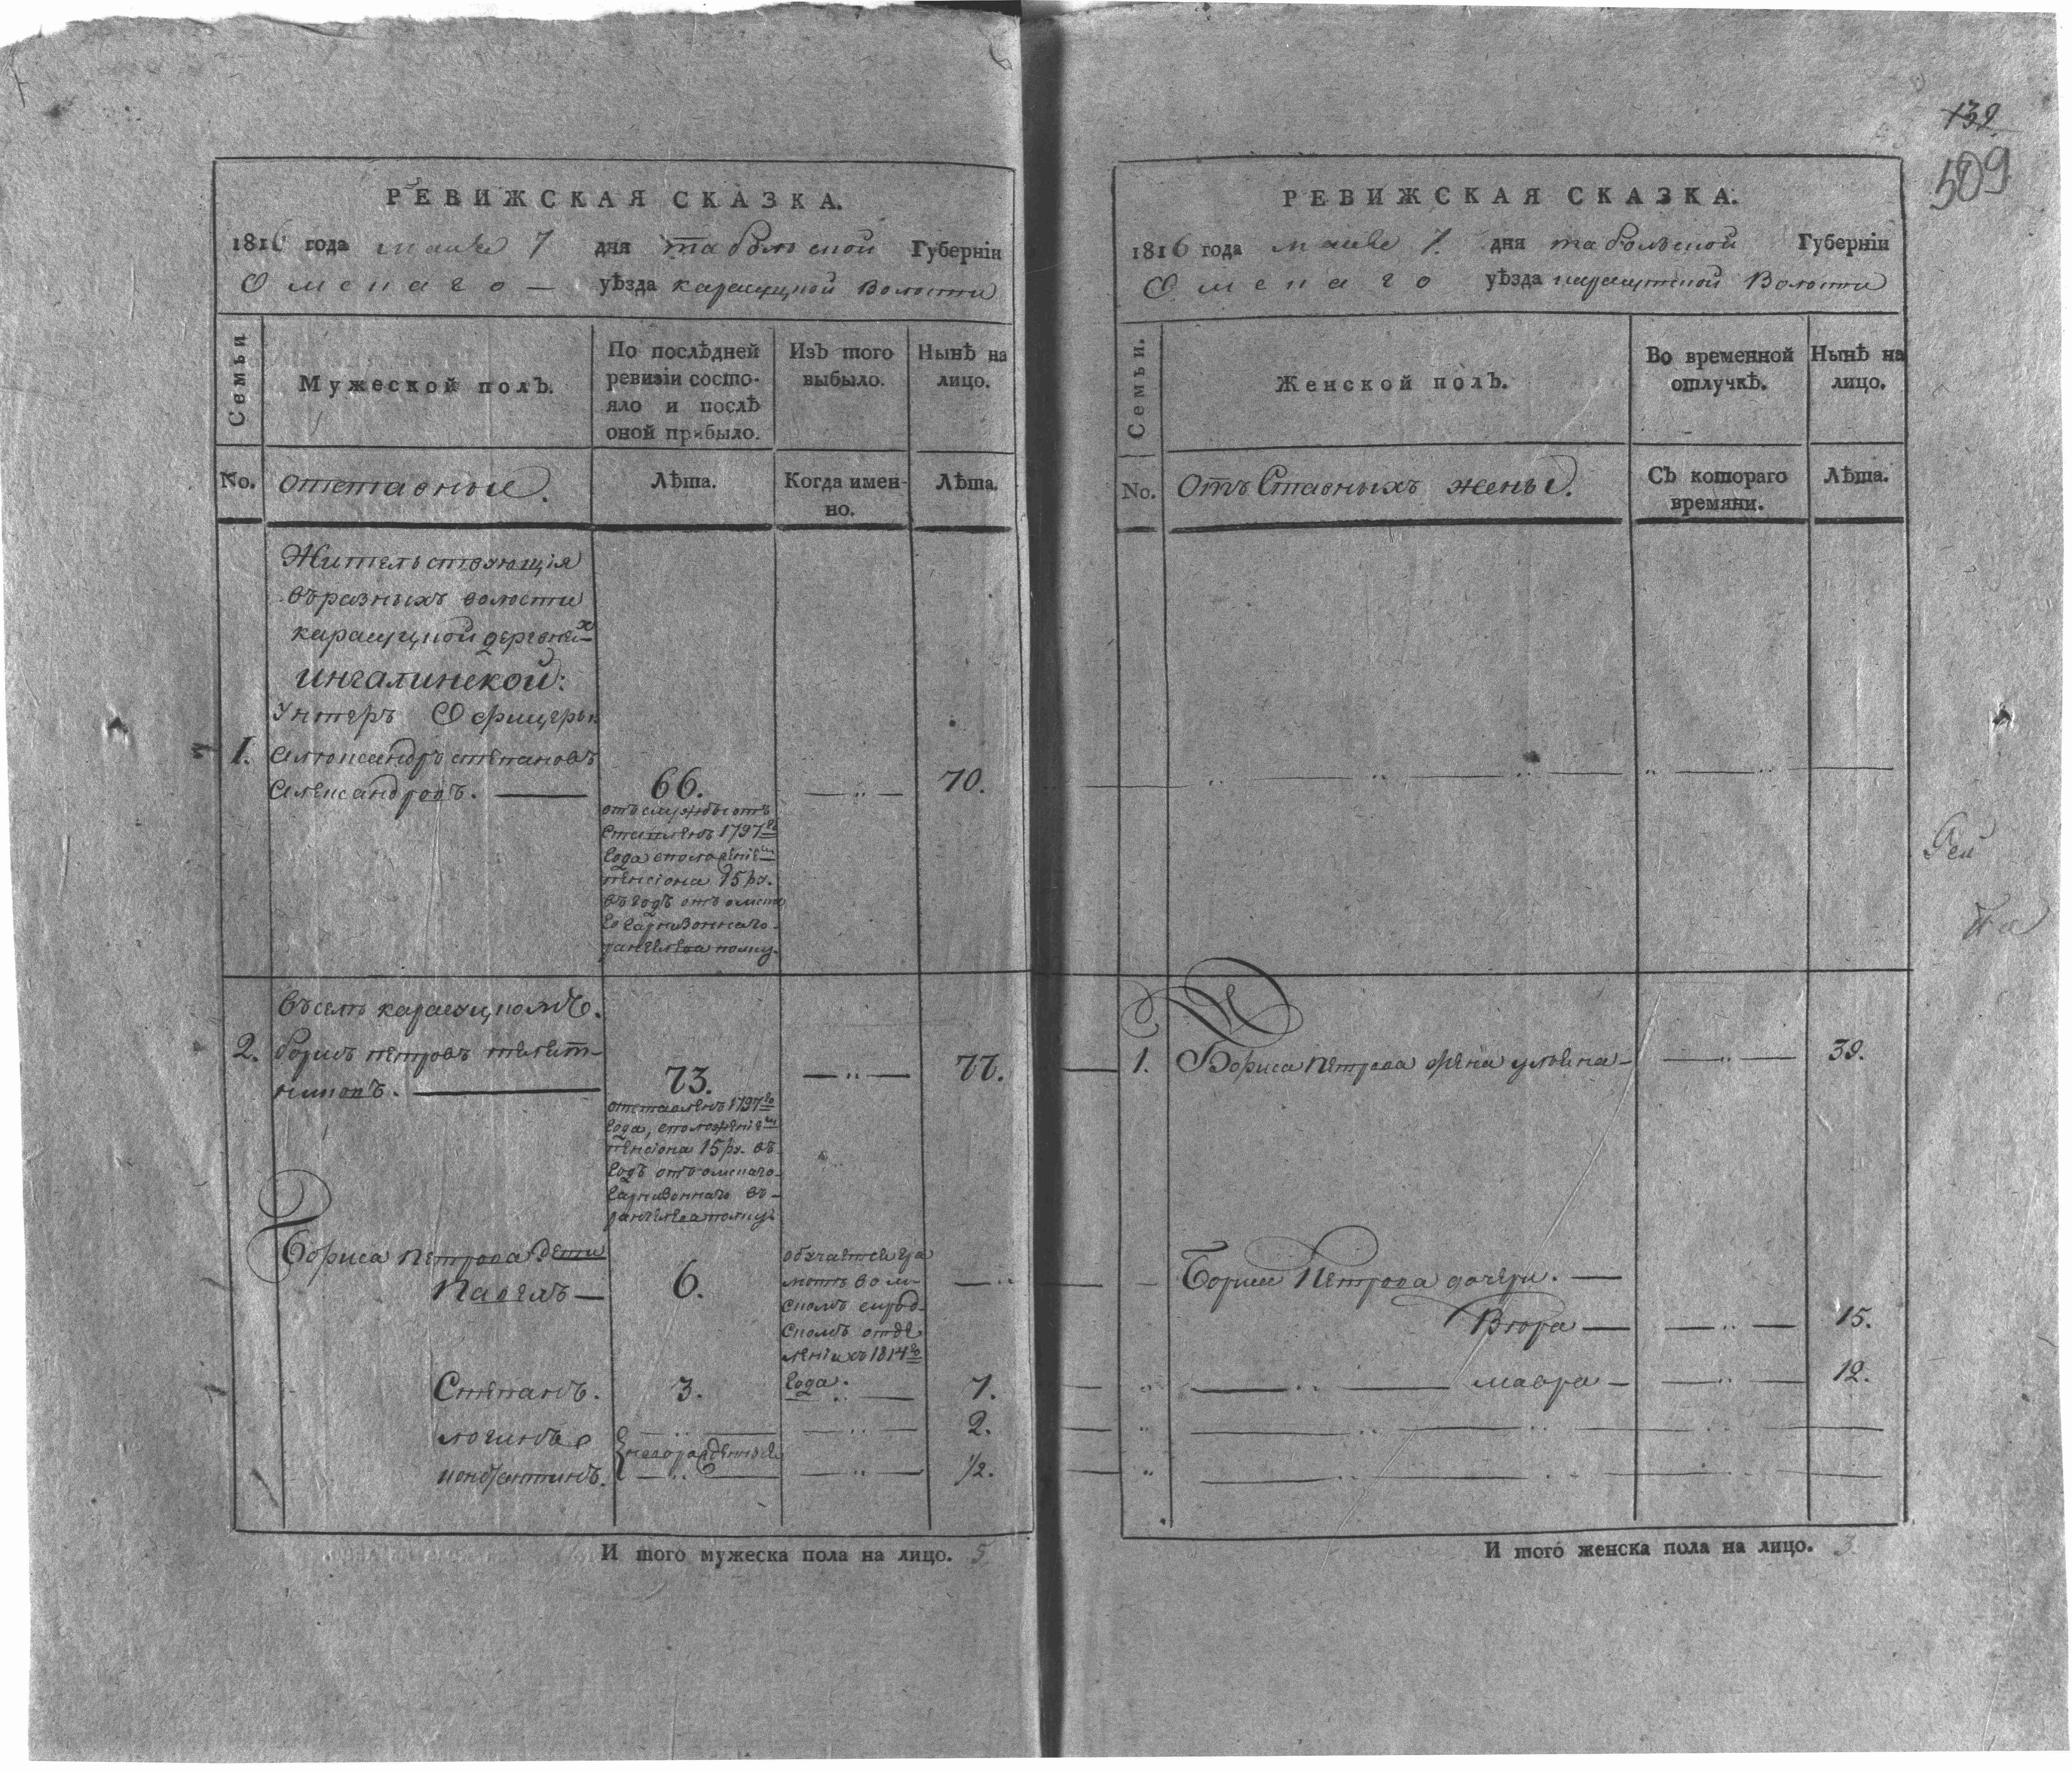 132
509
РЕВИЖСКАЯ СКАЗКА.
1816 года маие 7 дня табольской Губерніи
Омскаго — уѣзда карасуцкой Волости
Семьи
Мужеской полЪ.
По послѣдней
ревизіи состо-
яло и послѣ
оной прибыло.
ИзЪ того
выбыло.
Нынѣ на
лицо.
No.
отставные.
Лѣта.
Когда имен-
но.
Лѣта.
Жительствующія
въразныхъ волости
карасуцкой деревнях
ингалинской:
Унтеръ Офицеры
1. Александръ степановъ
Александровъ. — 66. — 70.
отъслужбы от
ставленъ 1797го
года сположением
пенсіона 15 ру.
въгодъ отъ омска
го гарнизоннаго
полку.
въселе карасуцкомъ.
2. борисъ петровъ
73. — 77.
отставленъ 1797го
года, сположением
пенсіона 15 ру. въ
годъ отъ омскаго
гарнизоннаго
полку
Бориса петрова дети
Павелъ — 6.
обучается гра
моте во ом
скомъ сирот
скомъ отде
леніи съ 1814го
года.
Степанъ. 3. — 7.
логинъ — 2.
новорожденные
константинъ. — 1/2.
И того мужеска пола на лицо. 5
РЕВИЖСКАЯ СКАЗКА.
1816 года маие 7. дня табольской Губерніи
Омскаго уѣзда карасутской Волости
Семьи.
Женской полЪ.
Во временной
отлучкѣ.
Нынѣ на
лицо.
No.
Отъ Ставныхъ жены.
СЪ котораго
времяни.
Лѣта.
1. Бориса петрова жена ульяна — 39.
Бориса Петрова дочери. —
Вюра — 15.
мавра — 12.
И того женска пола на лицо. 3.